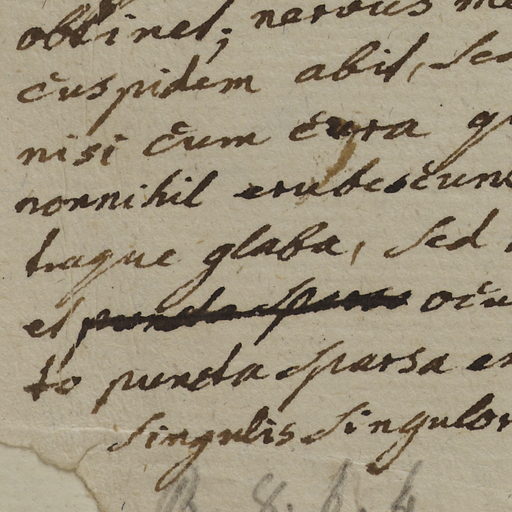 obtinet; nervus me
cuspidem abit, sed
nisi cum cura q
nonnihil erubescunt
traque glaba, sed
et puncta sparsa ocu
to puncta sparsa e
singulis singulor
B. 8. f. 4